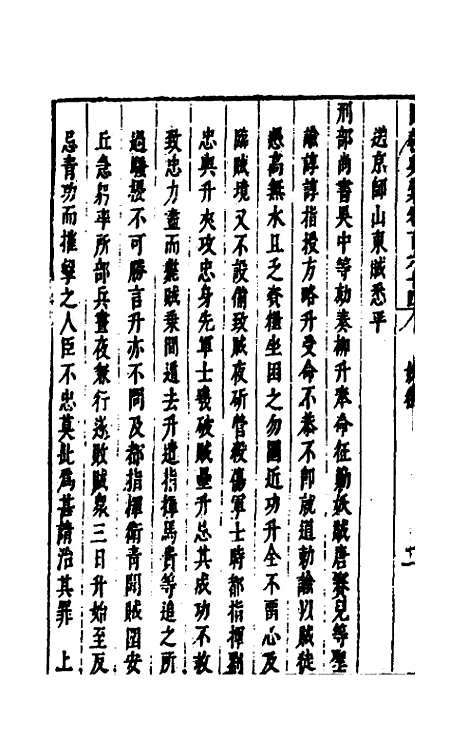 送京師山東賊悉平
刑部尚書吳中等劾奏柳升奉命征勦妖賊唐賽兒等聖
諭諄諄指授方略升受命不恭不即就道勅諭以賊徒
憑高無水且乏資糧坐困之勿圖近功升全不留心及
臨賊境又不設備致賊夜斫營殺傷軍士時都指揮劉
忠與升夾攻忠身先軍士幾破賊壘升忌其成功不救
致忠力盡而斃賊乘間遁去升遣指揮馬貴等追之所
過騷擾不可勝言升亦不問及都指揮衛青聞賊圍安
丘急躬率所部兵晝夜兼行遂敗賊眾三日升始至反
忌青功而摧擊之人臣不忠莫此爲甚請治其罪　上